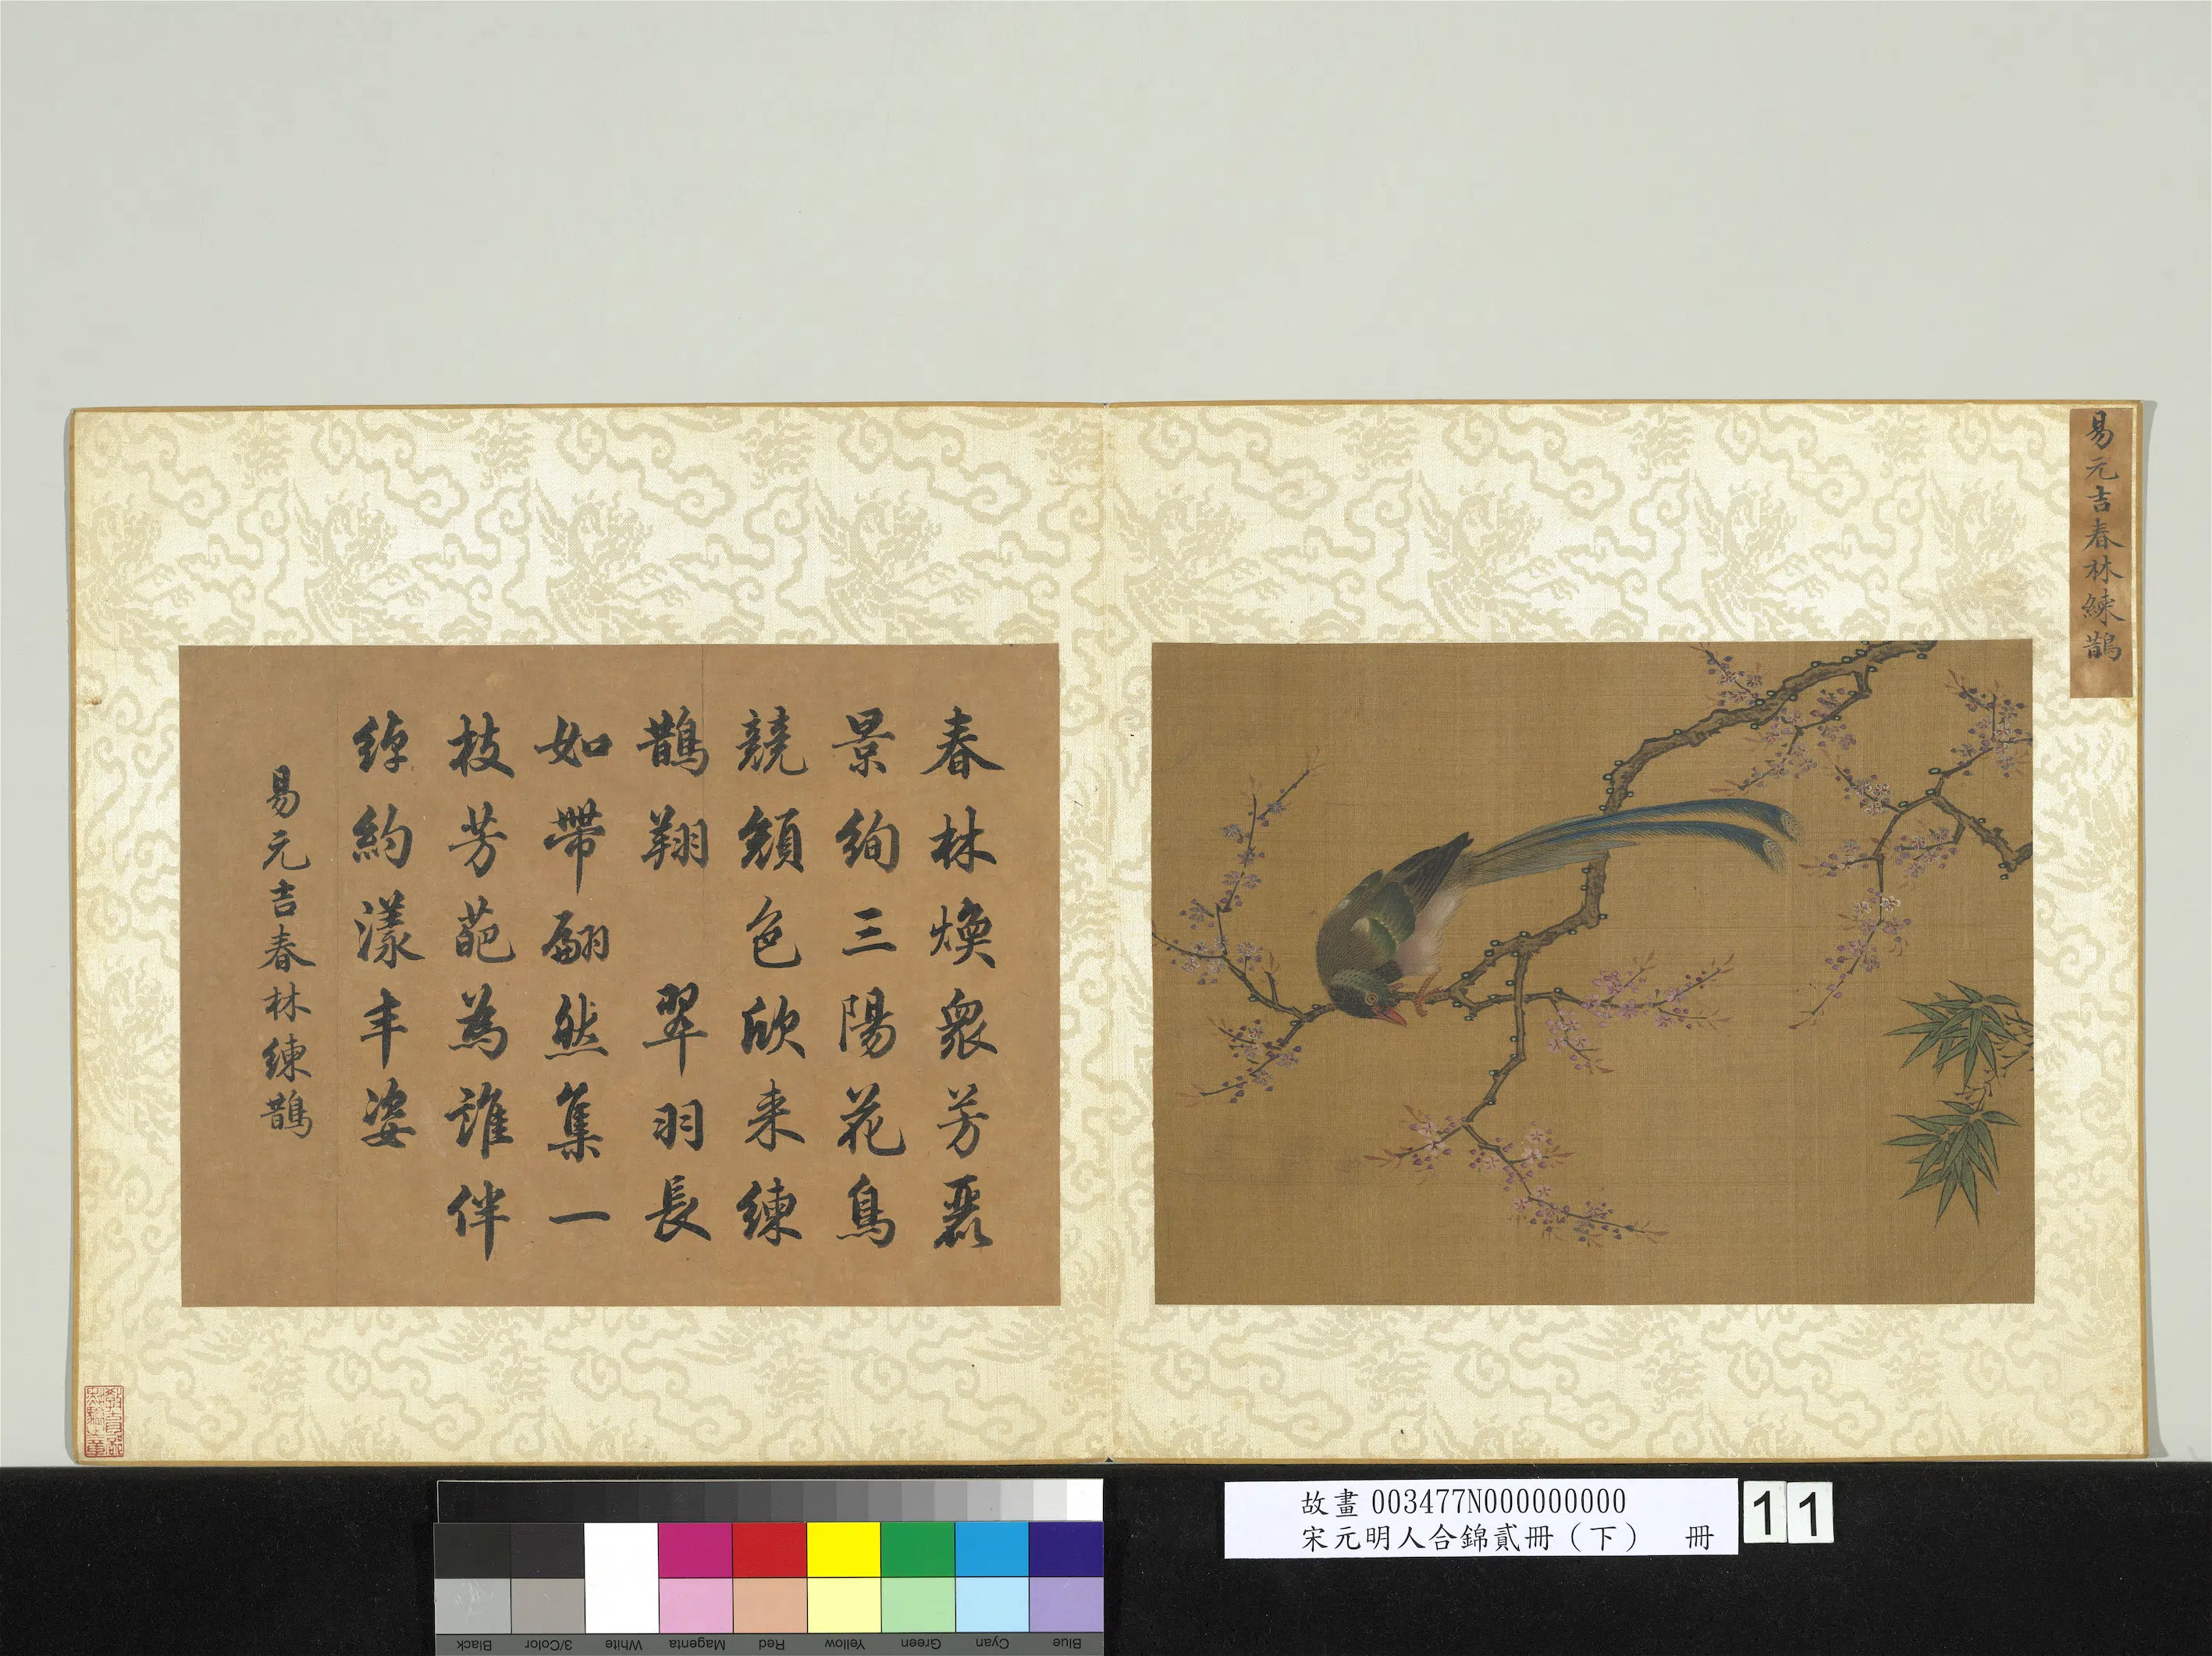 易元吉春林練鵲
春林煥衆芳麗
景絢三陽花鳥
競顏色欣来練
鵲翔 翠羽長
如帶翩然集一
枝芳葩為誰伴
綽約漾丰姿
易元吉春林練鵲
教育部點驗之章
故畫 003477N000000000
宋元明人合錦貳冊（下） 冊
11
Blue Cyan Green Yellow Red Magenta White 3/Color Black